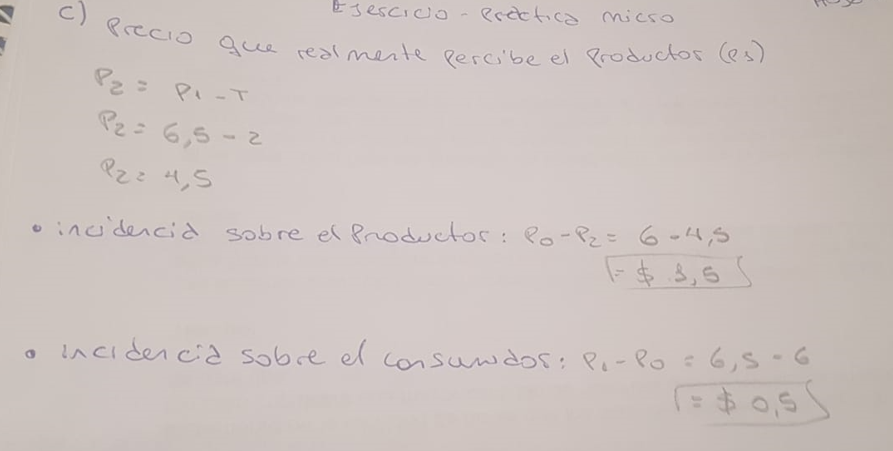 Ejercicio - Práctica micro
c) Precio que realmente percibe el productor (Ps)
P2 = P1 - T
P2 = 6,5 - 2
P2 = 4,5
• incidencia sobre el productor: P0 - P2 = 6 - 4,5
= $ 1,5
• incidencia sobre el consumidor: P1 - P0 = 6,5 - 6
= $ 0,5